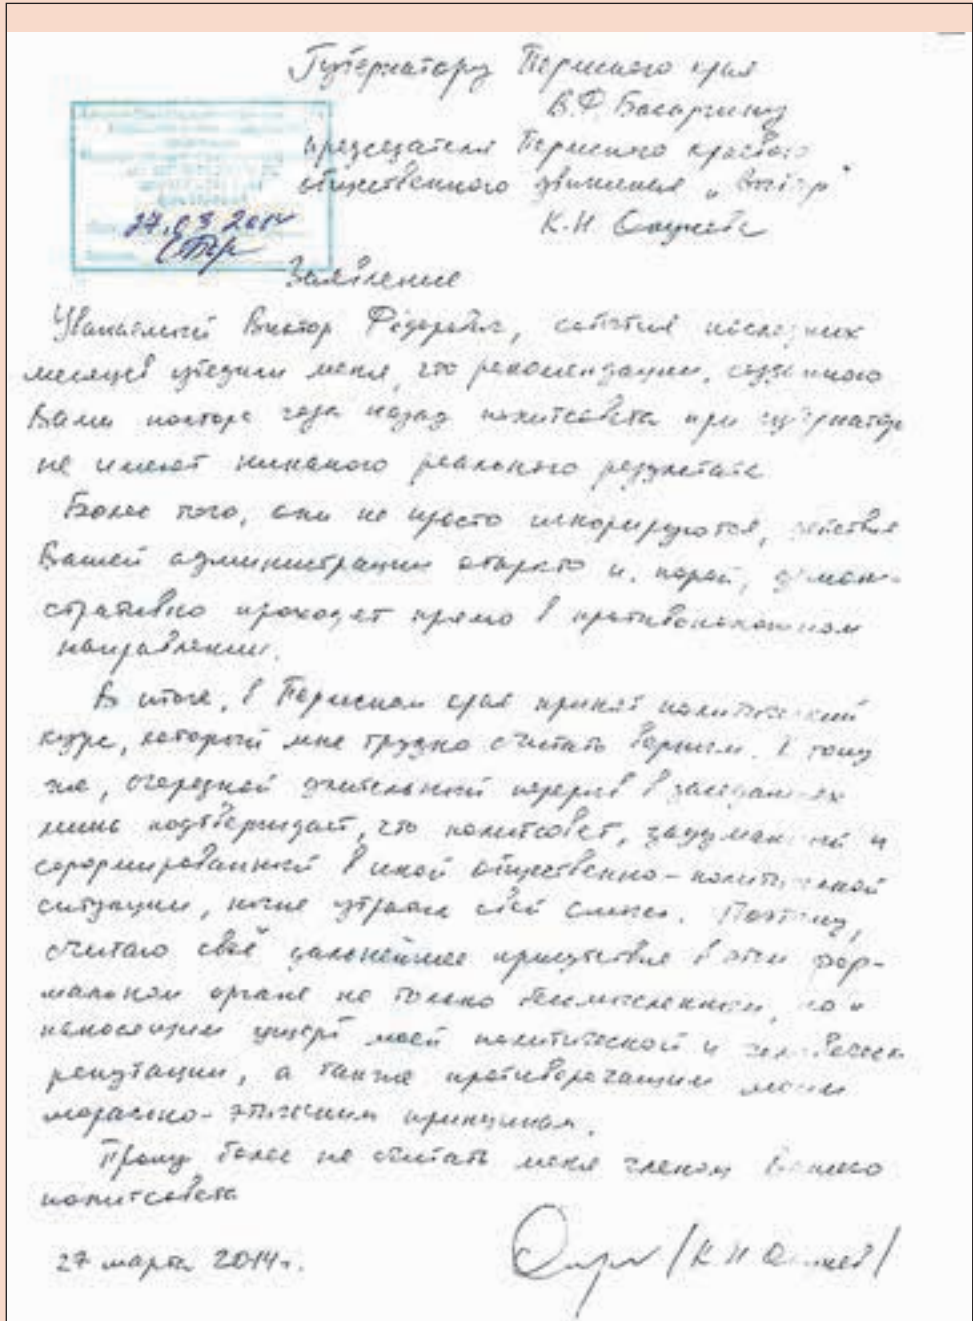 Губернатору Пермского края
В.Ф. Басаргину
председателя Пермского краевого
общественного движения „Выбор"
К.Н.
27.03.2014
Заявление
Уважаемый Виктор Фёдорович, события последних
месяцев убедили меня, что рекомендации, созданного
Вами полтора года назад политсовета при губернаторе
не имеют никакого реального результата
Более того, они не просто игнорируются, действия
Вашей администрации открыто и, порой, демон-
стративно проходят прямо в противоположном
направлении.
В итоге, в Пермском крае принят политический
курс, который мне трудно считать верным. К тому
же, очередной длительный перерыв в заседаниях
лишь подтверждает, что политсовет, задуманный и
сформированный в иной общественно-политической
ситуации, ныне утратил свой смысл. Поэтому,
считаю своё дальнейшее присутствие в этом фор-
мальном органе не только бессмысленным, но и
наносящим ущерб моей политической и человеческой
репутации, а также противоречащим моим
морально-этическим принципам.
Прошу более не считать меня членом Вашего
политсовета
27 марта 2014г.
/К.Н.